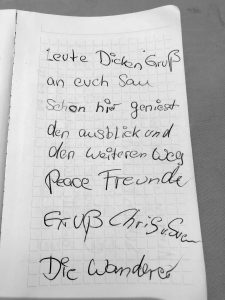 Leute Dicken Gruß
an euch Sau
Schön hir geniest
den ausblick und
den weiteren Weg
Peace Freunde
Gruß Chris u Sven
Die Wanderer